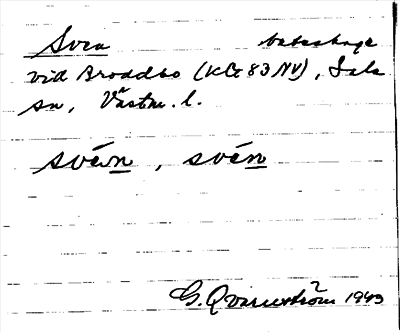 Svea beteshage
vid Broddbo (kb 83 NV), Sala
sn, Västm. l.
svéȧn, svén
G. Qvarnström 1943